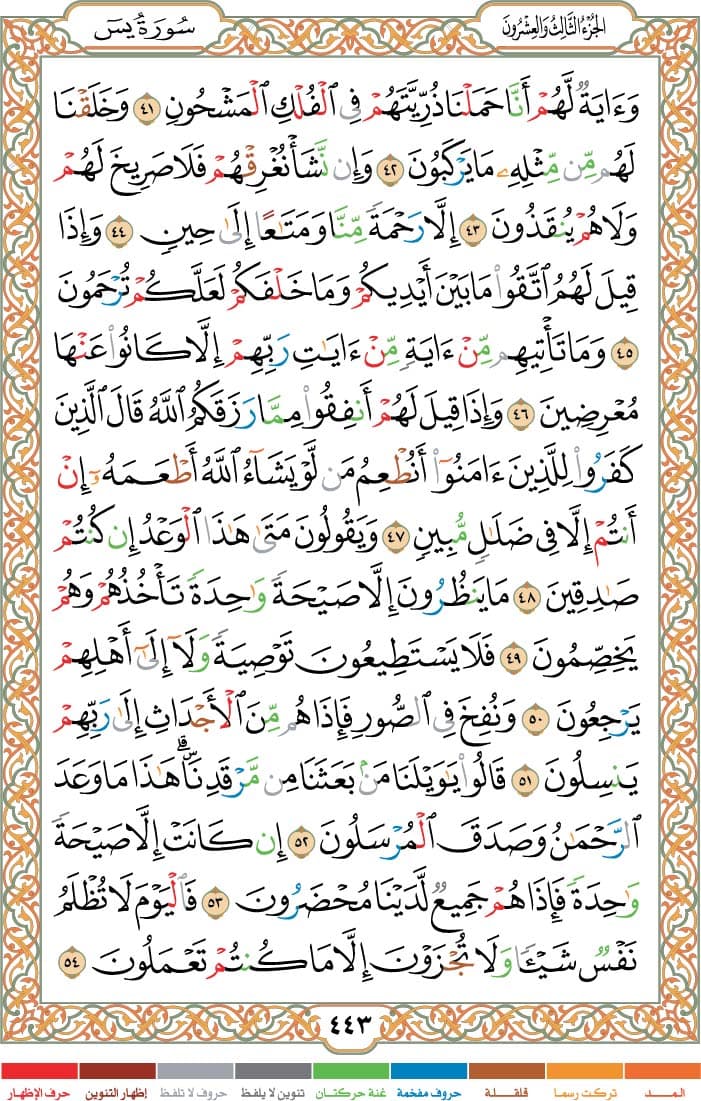 الجزء الثالث والعشرون
سورة يس
وَءَايَةٌ لَّهُمْ أَنَّا حَمَلْنَا ذُرِّيَّتَهُمْ فِى ٱلْفُلْكِ ٱلْمَشْحُونِ ٤١ وَخَلَقْنَا
لَهُم مِّن مِّثْلِهِۦ مَا يَرْكَبُونَ ٤٢ وَإِن نَّشَأْ نُغْرِقْهُمْ فَلَا صَرِيخَ لَهُمْ
وَلَا هُمْ يُنقَذُونَ ٤٣ إِلَّا رَحْمَةً مِّنَّا وَمَتَٰعًا إِلَىٰ حِينٍ ٤٤ وَإِذَا
قِيلَ لَهُمُ ٱتَّقُوا۟ مَا بَيْنَ أَيْدِيكُمْ وَمَا خَلْفَكُمْ لَعَلَّكُمْ تُرْحَمُونَ
٤٥ وَمَا تَأْتِيهِم مِّنْ ءَايَةٍ مِّنْ ءَايَٰتِ رَبِّهِمْ إِلَّا كَانُوا۟ عَنْهَا
مُعْرِضِينَ ٤٦ وَإِذَا قِيلَ لَهُمْ أَنفِقُوا۟ مِمَّا رَزَقَكُمُ ٱللَّهُ قَالَ ٱلَّذِينَ
كَفَرُوا۟ لِلَّذِينَ ءَامَنُوٓا۟ أَنُطْعِمُ مَن لَّوْ يَشَآءُ ٱللَّهُ أَطْعَمَهُۥٓ إِنْ
أَنتُمْ إِلَّا فِى ضَلَٰلٍ مُّبِينٍ ٤٧ وَيَقُولُونَ مَتَىٰ هَٰذَا ٱلْوَعْدُ إِن كُنتُمْ
صَٰدِقِينَ ٤٨ مَا يَنظُرُونَ إِلَّا صَيْحَةً وَٰحِدَةً تَأْخُذُهُمْ وَهُمْ
يَخِصِّمُونَ ٤٩ فَلَا يَسْتَطِيعُونَ تَوْصِيَةً وَلَآ إِلَىٰٓ أَهْلِهِمْ
يَرْجِعُونَ ٥٠ وَنُفِخَ فِى ٱلصُّورِ فَإِذَا هُم مِّنَ ٱلْأَجْدَاثِ إِلَىٰ رَبِّهِمْ
يَنسِلُونَ ٥١ قَالُوا۟ يَٰوَيْلَنَا مَنۢ بَعَثَنَا مِن مَّرْقَدِنَا ۜ ۗ هَٰذَا مَا وَعَدَ
ٱلرَّحْمَٰنُ وَصَدَقَ ٱلْمُرْسَلُونَ ٥٢ إِن كَانَتْ إِلَّا صَيْحَةً
وَٰحِدَةً فَإِذَا هُمْ جَمِيعٌ لَّدَيْنَا مُحْضَرُونَ ٥٣ فَٱلْيَوْمَ لَا تُظْلَمُ
نَفْسٌ شَيْـًٔا وَلَا تُجْزَوْنَ إِلَّا مَا كُنتُمْ تَعْمَلُونَ ٥٤
٤٤٣
المــد تركت رسما قلقـلة حروف مفخمة غنة حركتان تنوين لا يلفظ حروف لا تلفظ إظهار التنوين حرف الإظهار